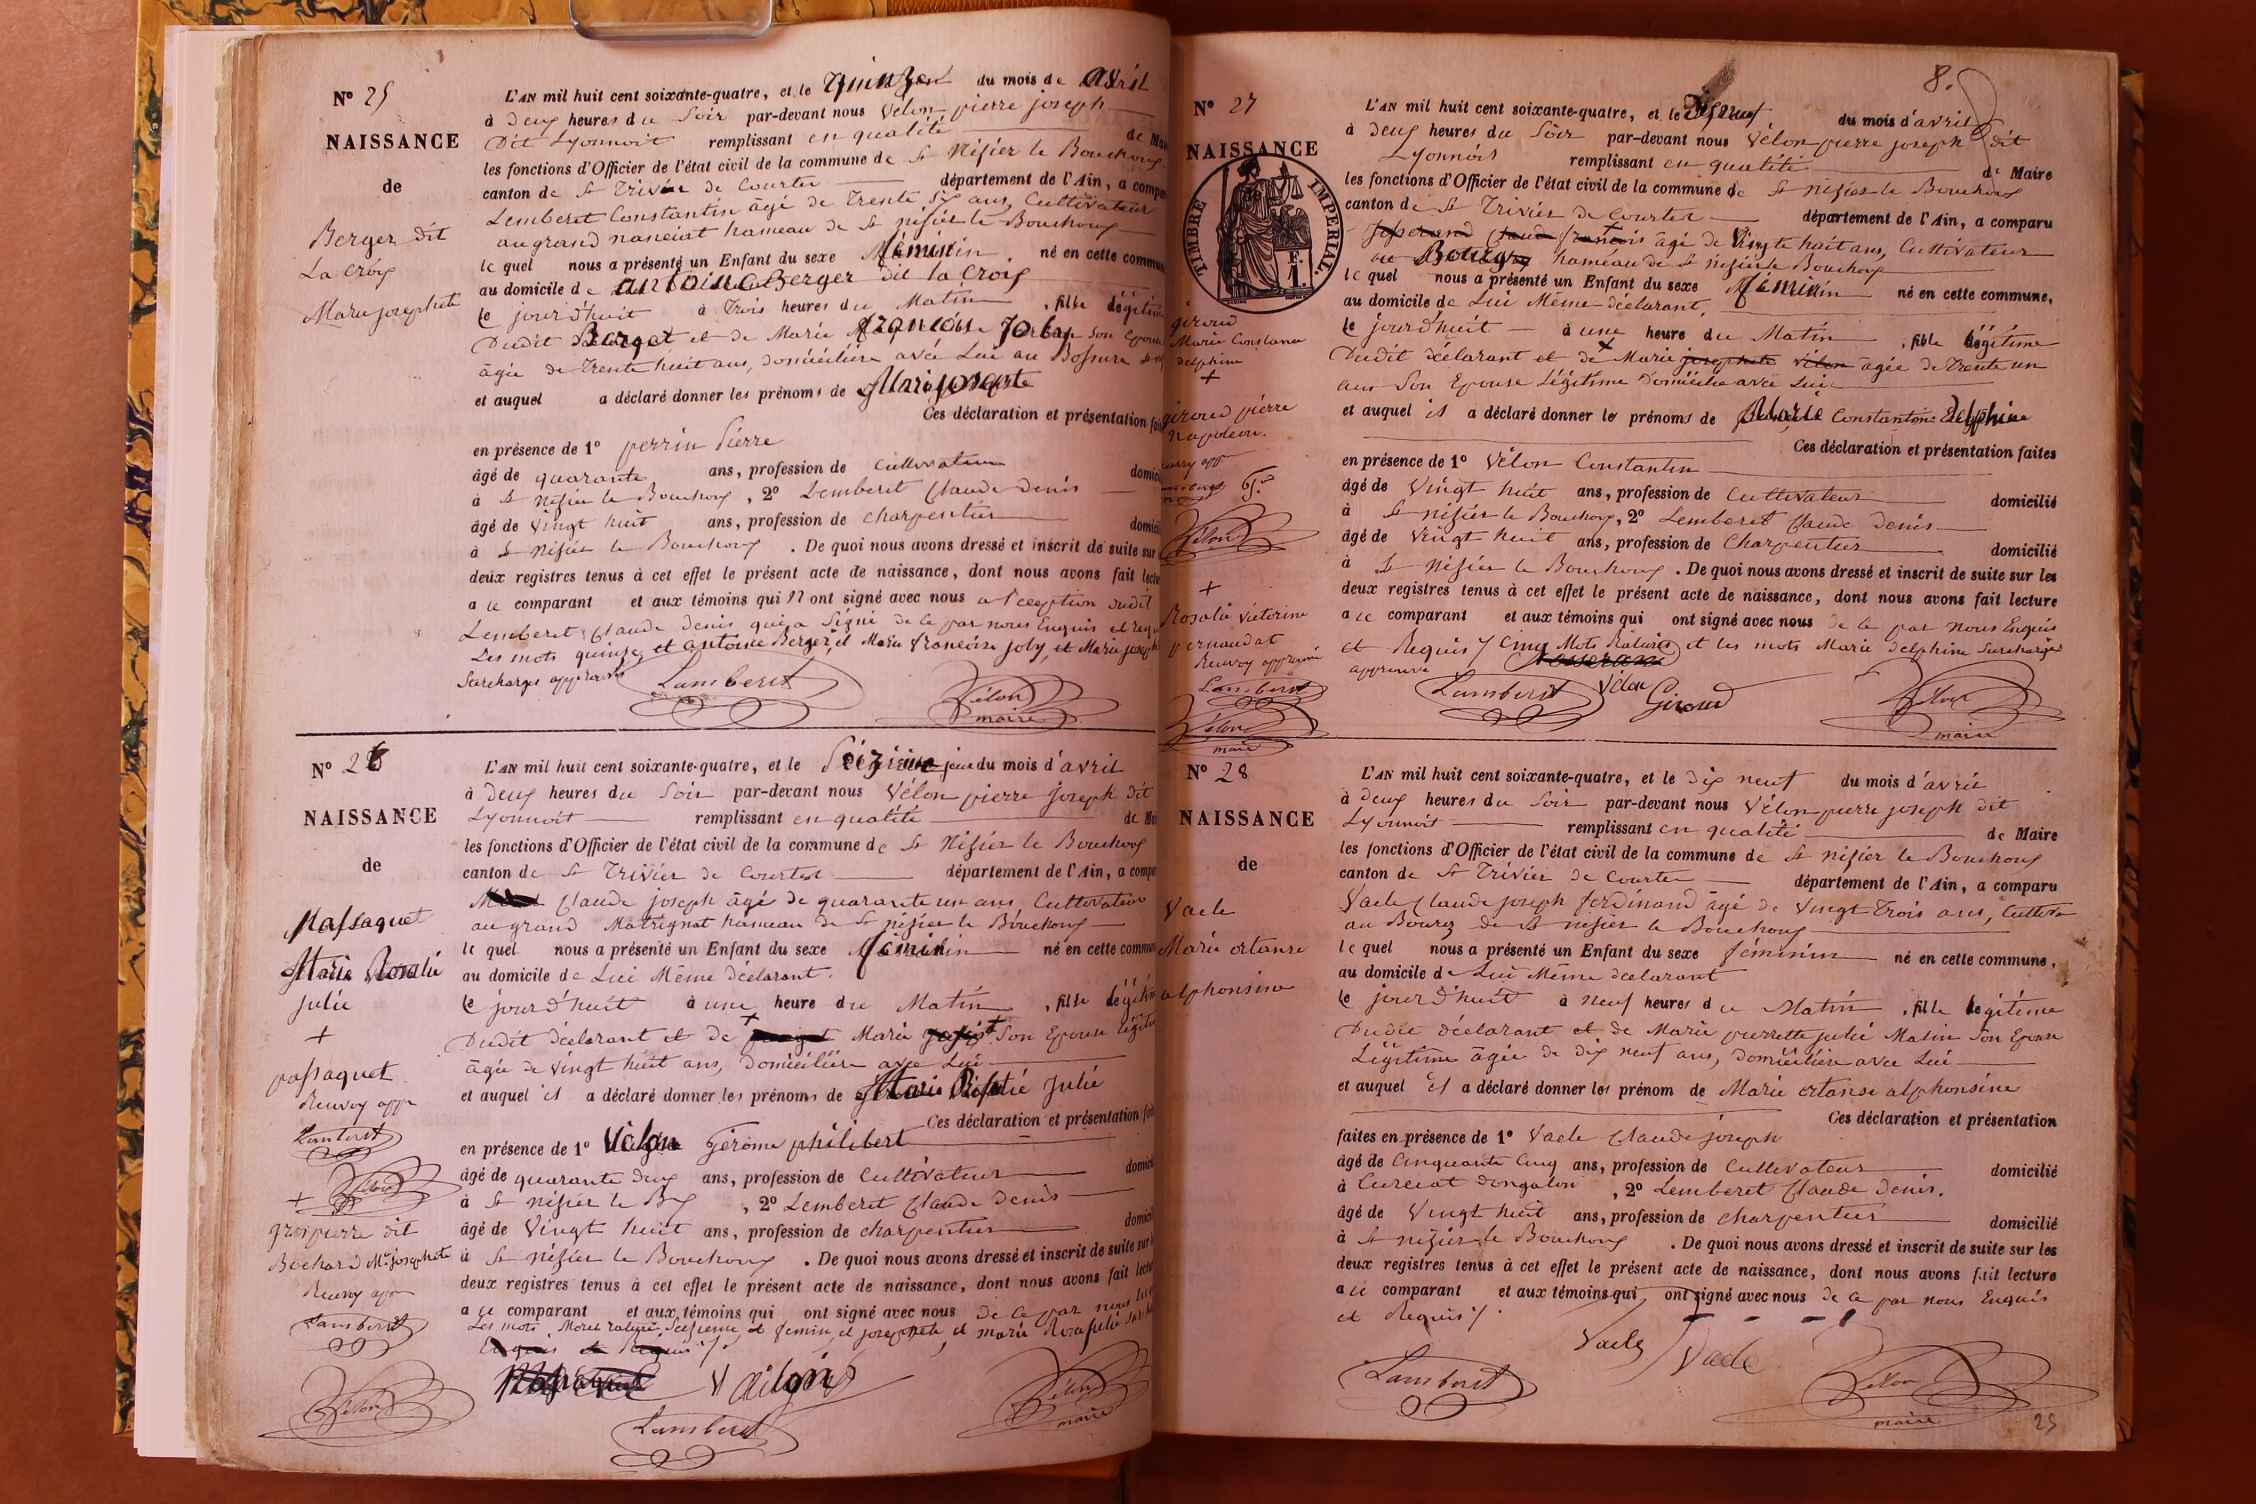 N° 25
NAISSANCE
de
Berger dit
La Croix
Marie josephete
L'AN mil huit cent soixante-quatre, et le quinze du mois de avril
à Deux heures du Soir par-devant nous Vélon pierre joseph
Dit Lyonnoit remplissant en qualité de
les fonctions d'Officier de l'état civil de la commune de St Nisier le Bouchoux
canton de St Trivier de Courtes département de l'Ain, a
Lemberet Constantin âgé de Trente Six ans, Cultivateur
au grand hameau de St nisier le Bouchoux
le quel nous a présenté un Enfant du sexe féminin né en cette
au domicile de antoine Berger dit la Croix
le jourd'huit à Trois heures du Matin , fille
Dudit Berger et de Marie françoise Joly Son
âgée de Trente huit ans, domiciliée avec Lui au
et auquel a déclaré donner les prénoms de Marie
Ces déclaration et présentation
en présence de 1° perrin Pierre
âgé de quarante ans, profession de Cultivateur
à St nisier le Bouchoux , 2° Lemberet Claude denis
âgé de Vingt huit ans, profession de Charpentier
à St Nisier le Bouchoux . De quoi nous avons dressé et inscrit de suite sur
deux registres tenus à cet effet le présent acte de naissance, dont nous avons fait
a ce comparant et aux témoins qui n'ont signé avec nous a l'exeption dudit
Lemberet Claude denis qui a Signé de ce par nous Enquis et
Les mots quinze, et antoine Berger, et Marie françoise joly, et Marie
Surcharges
Lamberet
Vélon
maire
N° 26
NAISSANCE
de
Massaquet
Marie Rosalie
Julie
+
passaquet
Renvoy app
Lamberet
Vélon
+
grospierre dit
Bochard Me josephete
Renvoy app
Lamberet
Vélon
L'AN mil huit cent soixante-quatre, et le Seizième jour du mois d'avril
à Deux heures du Soir par-devant nous Vélon pierre joseph dit
Lyonnoit remplissant en qualité de
les fonctions d'Officier de l'état civil de la commune de St Nisier le Bouchoux
canton de St Trivier de Courtes département de l'Ain, a
Claude joseph âgé de quarante un ans, Cultivateur
au grand Matrignat hameau de St nisier le Bouchoux
le quel nous a présenté un Enfant du sexe féminin né en cette
au domicile de Lui Même déclarant.
le jourd'huit à une heure du Matin , fille
Dudit déclarant et de Marie Son Epouse
âgée de Vingt huit ans, domiciliée avec Lui
et auquel il a déclaré donner les prénoms de Marie Rosalie Julie
Ces déclaration et présentation
en présence de 1° Vélon Gérome philibert
âgé de quarante deux ans, profession de Cultivateur
à St nisier le Bx , 2° Lemberet Claude Denis
âgé de Vingt huit ans, profession de charpentier
à St nisier le Bouchoux . De quoi nous avons dressé et inscrit de suite sur
deux registres tenus à cet effet le présent acte de naissance, dont nous avons fait
a ce comparant et aux témoins qui ont signé avec nous de ce par nous
Les mots
Lamberet
Vélon
maire
N° 27
NAISSANCE
TIMBRE IMPERIAL.
F.
1.
giroud
Marie Constance
delphine
+
giroud pierre
Napoleon.
Vélon
+
Rosalie Victorine
pernaudat
Renvoy approuvé
Lamberet
Vélon
maire
8.
L'AN mil huit cent soixante-quatre, et le Dix neuf du mois d'avril
à Deux heures du Soir par-devant nous Vélon pierre joseph dit
Lyonnois remplissant en qualité de Maire
les fonctions d'Officier de l'état civil de la commune de St nisier le Bouchoux
canton de St Trivier de Courtes département de l'Ain, a comparu
Claude françois âgé de Vingte huit ans, Cultivateur
au hameau de St nisier le Bouchoux
le quel nous a présenté un Enfant du sexe féminin né en cette commune,
au domicile de Lui Même déclarant.
le jourd'huit à une heure du Matin , fille légitime
Dudit déclarant et de Marie josephete Vélon âgée de Trente un
ans Son Epouse Légitime Domiciliée avec Lui
et auquel il a déclaré donner les prénoms de Marie Constantine Delphine
Ces déclaration et présentation faites
en présence de 1° Vélon Constantin
âgé de Vingt huit ans, profession de Cultivateur domicilié
à St nisier le Bouchoux, 2° Lemberet Claude denis
âgé de Vingt huit ans, profession de Charpentier domicilié
à St Nisier le Bouchoux . De quoi nous avons dressé et inscrit de suite sur les
deux registres tenus à cet effet le présent acte de naissance, dont nous avons fait lecture
a ce comparant et aux témoins qui ont signé avec nous de ce par nous Enquis
et Requis / Cinq Mots et les mots Marie delphine Surchargés
approuvé
Lamberet Vélon Giroud
Vélon
maire
N° 28
NAISSANCE
de
Vaele
Marie ortanse
alphonsine
L'AN mil huit cent soixante-quatre, et le dix neuf du mois d'avril
à Deux heures du Soir par-devant nous Vélon pierre joseph dit
Lyonnoit remplissant en qualité de Maire
les fonctions d'Officier de l'état civil de la commune de St nisier le Bouchoux
canton de St Trivier de Courtes département de l'Ain, a comparu
Vaele Claude joseph ferdinand âgé de Vingt Trois ans,
au Bourg de St nisier le Bouchoux
le quel nous a présenté un Enfant du sexe féminin né en cette commune,
au domicile de Lui Même déclarant
le jourd'huit à neuf heures du Matin , fille légitime
Dudit déclarant et de Marie pierrette julie Matin Son Epouse
Légitime âgée de dix neuf ans, domiciliée avec Lui
et auquel il a déclaré donner les prénom de Marie ortanse alphonsine
Ces déclaration et présentation
faites en présence de 1° Vaele Claude joseph
âgé de Cinquante Cinq ans, profession de Cultivateur domicilié
à Curciat dongalon , 2° Lemberet Claude Denis.
âgé de Vingt huit ans, profession de charpentier domicilié
à St nisier le Bouchoux . De quoi nous avons dressé et inscrit de suite sur les
deux registres tenus à cet effet le présent acte de naissance, dont nous avons fait lecture
a ce comparant et aux témoins qui ont signé avec nous de ce par nous Enquis
et Requis /.
Vaele Vaele
Lamberet
Vélon
maire